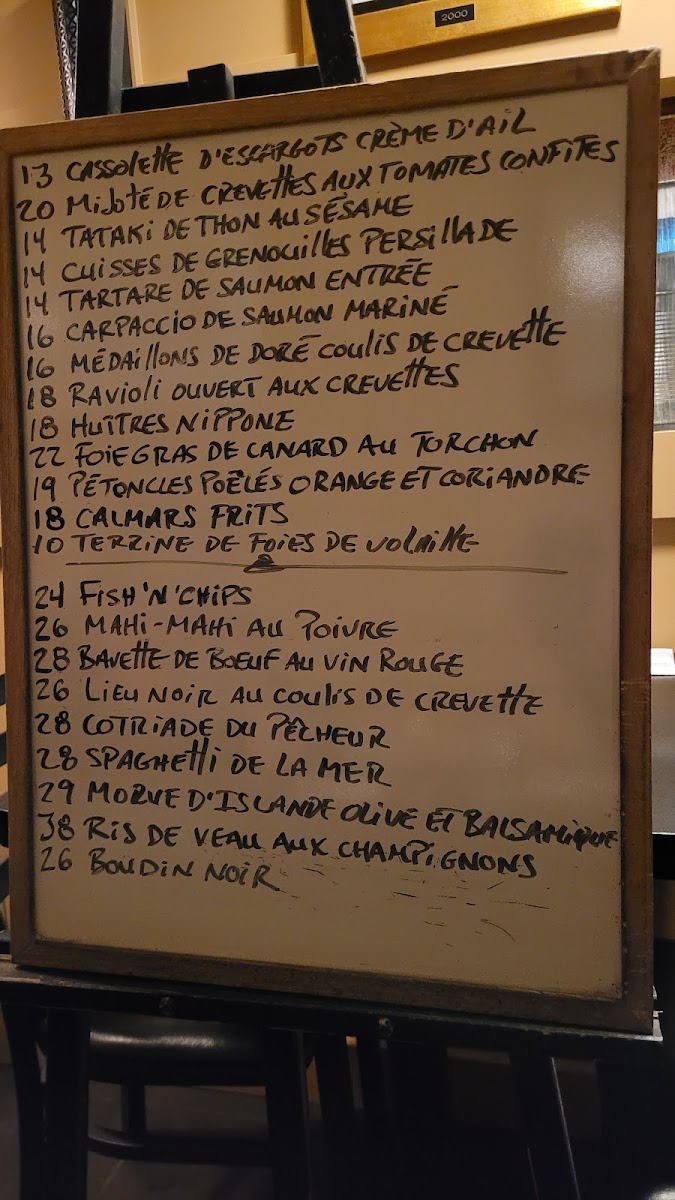 2000
13 CASSOLETTE D'ESCARGOTS CRÈME D'AIL
20 MIJOTÉ DE CREVETTES AUX TOMATES CONFITES
14 TATAKI DE THON AU SÉSAME
14 CUISSES DE GRENOUILLES PERSILLADE
14 TARTARE DE SAUMON ENTRÉE
16 CARPACCIO DE SAUMON MARINÉ
16 MÉDAILLONS DE DORÉ COULIS DE CREVETTE
18 RAVIOLI OUVERT AUX CREVETTES
18 HUÎTRES NIPPONE
22 FOIE GRAS DE CANARD AU TORCHON
19 PÉTONCLES POÊLÉS ORANGE ET CORIANDRE
18 CALMARS FRITS
10 TERRINE DE FOIES DE VOLAILLE
24 FISH 'N' CHIPS
26 MAHI-MAHI AU POIVRE
28 BAVETTE DE BOEUF AU VIN ROUGE
26 LIEU NOIR AU COULIS DE CREVETTE
28 COTRIADE DU PÊCHEUR
28 SPAGHETTI DE LA MER
29 MORUE D'ISLANDE OLIVE ET BALSAMIQUE
38 RIS DE VEAU AUX CHAMPIGNONS
26 BOUDIN NOIR